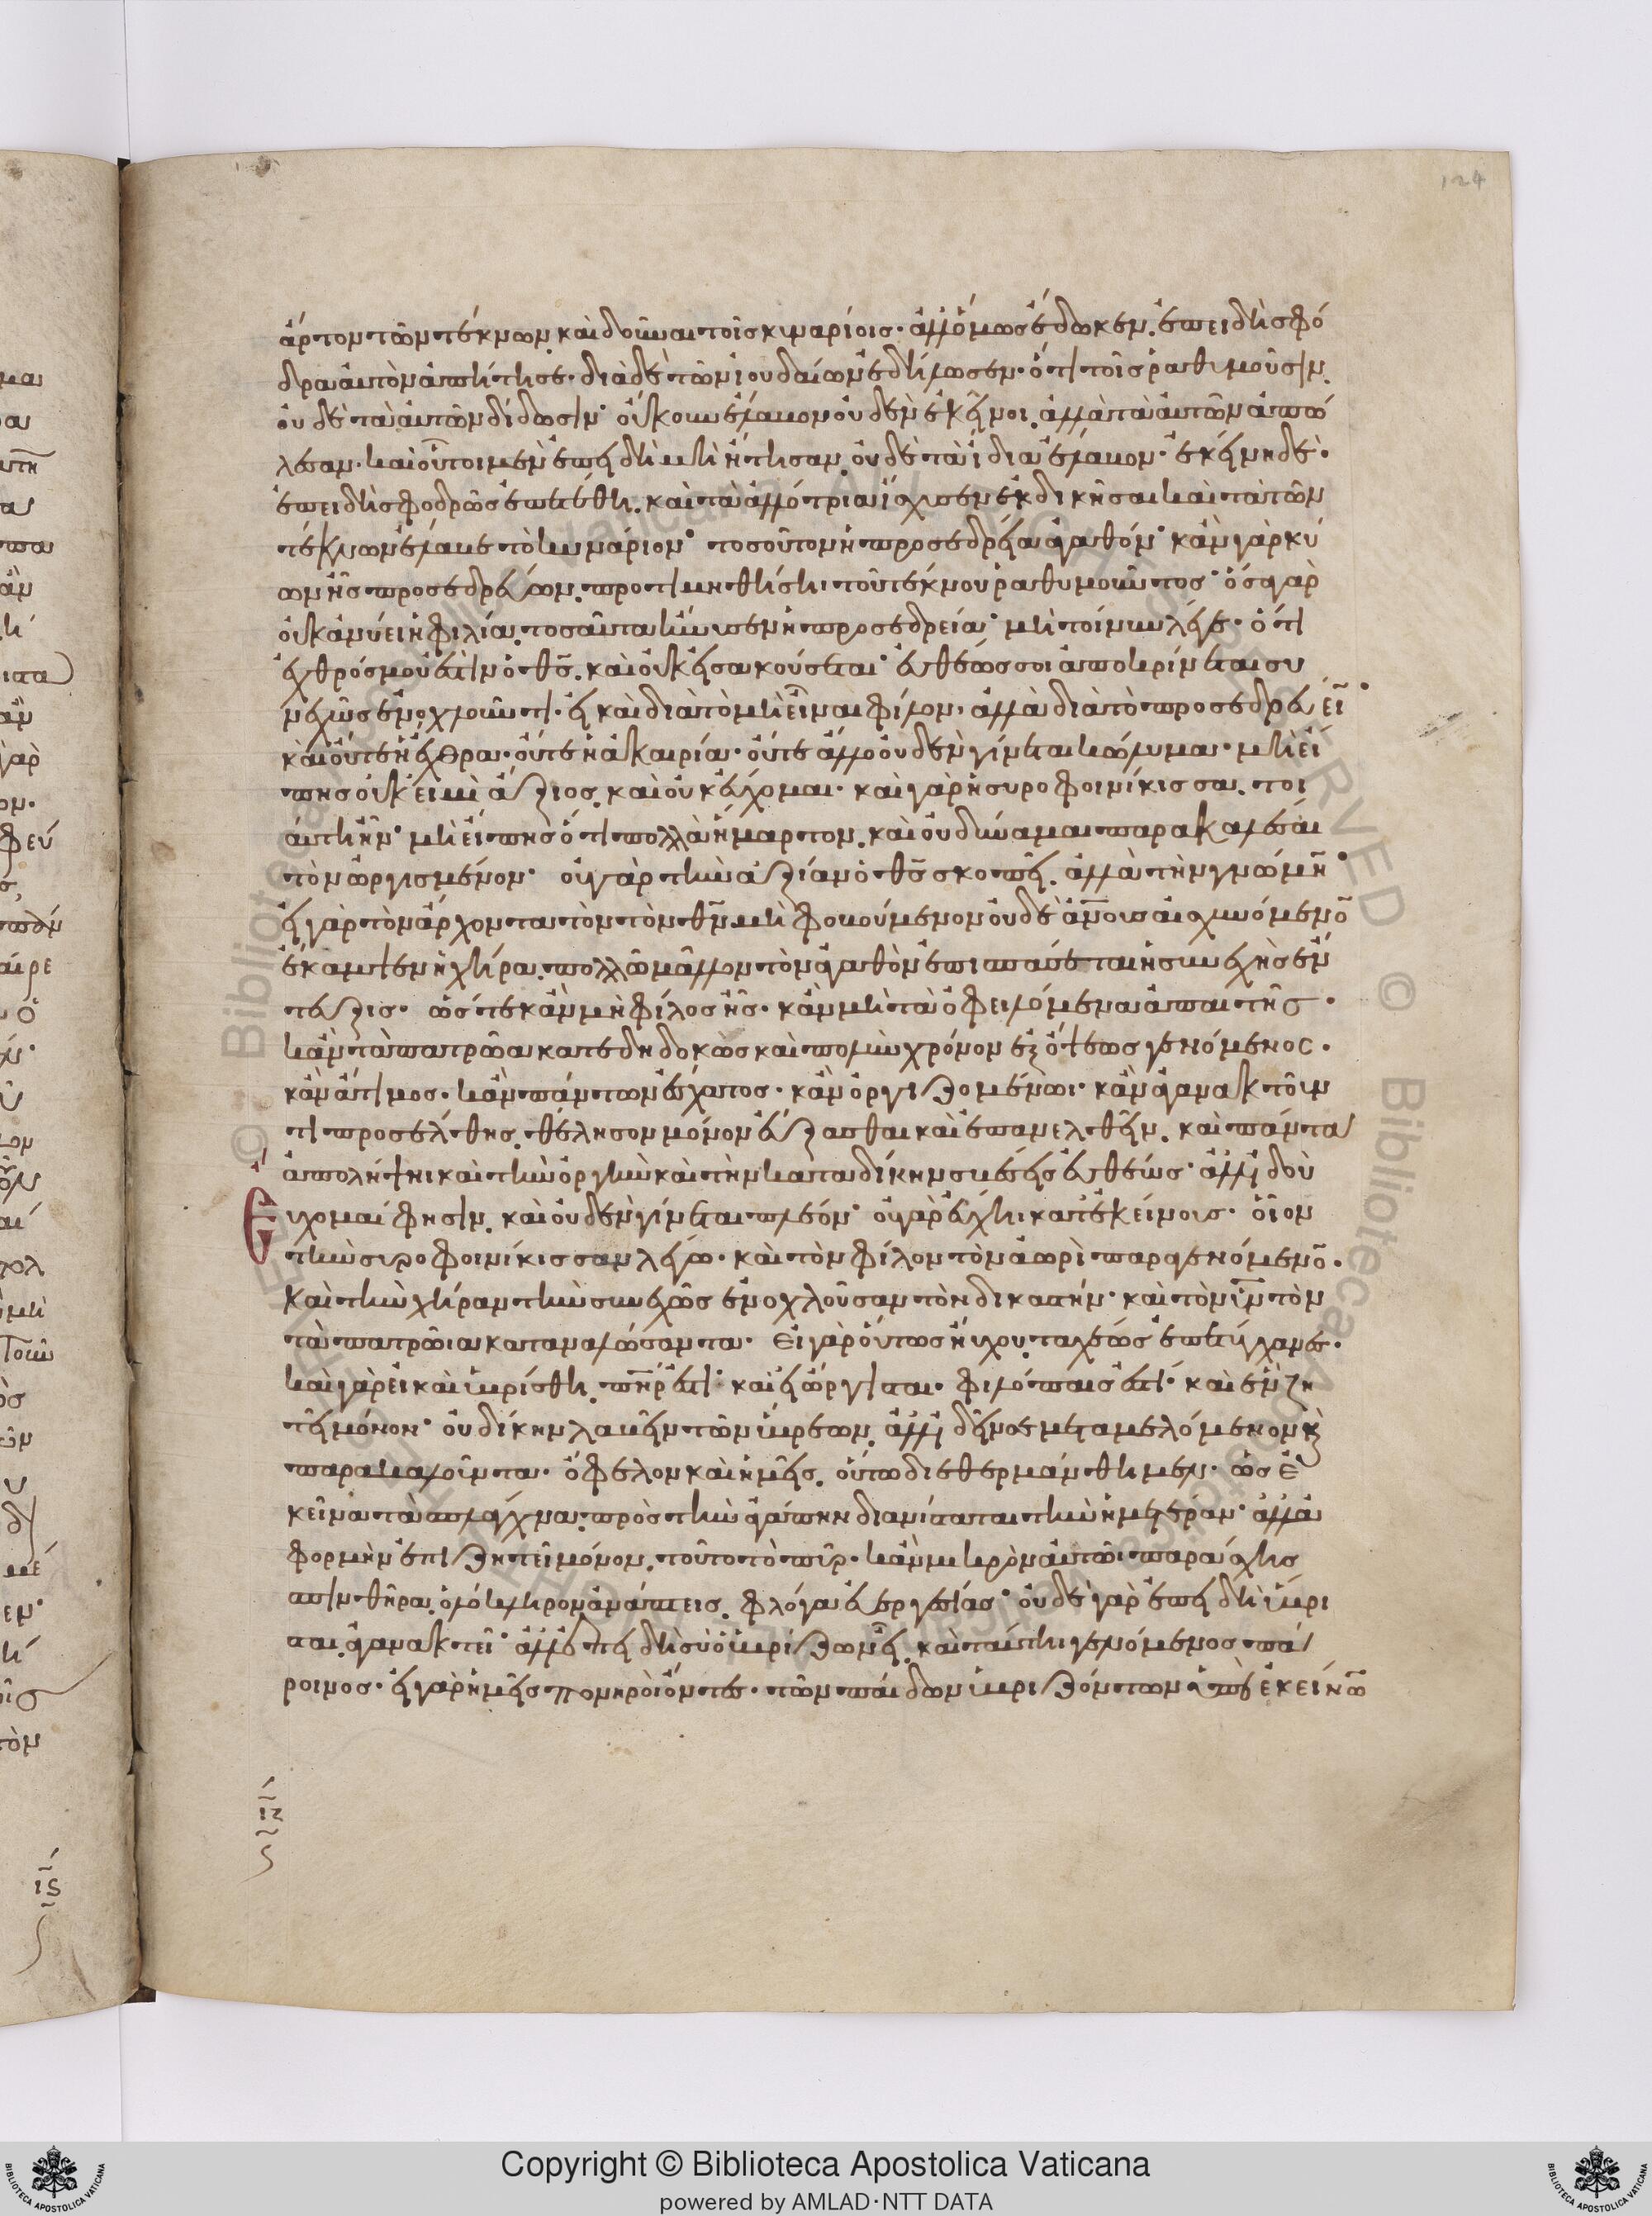 124
ἄρτον τῶν τέκνων καὶ δοῦναι τοῖς κυναρίοις· ἀλλ' ὅμως ἔδωκεν, ἐπειδὴ σφό
δρα αὐτὸν ἀπῄτησε· διὰ δὲ τῶν ἰουδαίων ἐδήλωσεν· ὅτι τοῖς ῥαθυμοῦσιν,
οὐδὲ τὰ αὐτῶν δίδωσιν· οὐκοῦν ἔλαβον οὐδὲν ἐκεῖνοι, ἀλλὰ τὰ αὐτῶν ἀπώ
λεσαν· καὶ οὗτοι μὲν ἐπειδὴ μὴ ᾔτησαν, οὐδὲ τὰ ἴδια ἔλαβον· ἐκείνη δὲ·
ἐπειδὴ σφοδρῶς ἐπετέθη, καὶ τὰ ἀλλότρια ἴσχυσεν ἐκδικῆσαι καὶ τὰ τῶν
τέκνων ἔλαβε τὸ κυνάριον· τοσοῦτον ἡ προσεδρεία ἀγαθόν· κἂν γὰρ κύ
ων ᾖς προσεδρεύων, προτιμηθήσῃ τοῦ τέκνου ῥαθυμοῦντος· ὅσα γὰρ
οὐκ ἀνύει ἡ φιλία, τοσαῦτα ἤνυσεν ἡ προσεδρεία· μὴ τοίνυν λέγε· ὅτι
ἐχθρός μου ἐστὶν ὁ θ̅ς̅, καὶ οὐκ εἰσακούσεται· εὐθέως σοι ἀποκρίνεται συ
νεχῶς ἐνοχλοῦντι· εἰ καὶ διὰ τὸ μὴ εἶναι φίλον, ἀλλὰ διὰ τὸ προσεδρεύει̅·
καὶ οὔτε ἡ ἔχθρα· οὔτε ἡ ἀκαιρία· οὔτε ἄλλο οὐδὲν γίνεται κώλυμα· μὴ εἴ
πῃς οὐκ εἰμὶ ἄξιος, καὶ οὐκ εὔχομαι· καὶ γὰρ ἡ συροφοινίκισσα, τοι
αύτη ἦν· μὴ εἴπῃς ὅτι πολλὰ ἥμαρτον, καὶ οὐ δύναμαι παρακαλέσαι
τὸν ὠργισμένον· οὐ γὰρ τὴν ἀξίαν ὁ θ̅ς̅ σκοπεῖ, ἀλλὰ τὴν γνώμη̅·
εἰ γὰρ τὸν ἄρχοντα τὸν τὸν θ̅ν̅ μὴ φοβούμενον οὐδὲ ἀ̅ν̅ο̅υ̅ς̅ αἰσχυνόμενο̅
ἔκαμψεν ἡ χήρα, πολλῷ μᾶλλον τὸν ἀγαθὸν ἐπισπάσεται ἡ συνεχὴς ἔν
τευξις· ὥστε κἂν μὴ φίλος ᾖς· κἂν μὴ τὰ ὀφειλόμενα ἀπαιτῇς·
κἂν τὰ πατρῷα κατεδηδοκὼς καὶ πολὺν χρόνον ἐξ ὄψεως γενόμενος·
κἂν ἄτιμος· κἂν πάντων ἔσχατος· κἂν ὀργιζομένῳ· κἂν ἀγανακτοῦν
τι προσέλθῃς, θέλησον μόνον εὔξασθαι καὶ ἐπανελθεῖν, καὶ πάντα
ἀπολήψῃ καὶ τὴν ὀργὴν καὶ τὴν καταδίκην σβέσεις εὐθέως· ἀλλ' ἰδοὺ
Εὔχομαί φησιν, καὶ οὐδὲν γίνεται πλέον· οὐ γὰρ εὔχῃ κατ' ἐκείνους· οἷον
τὴν συροφοινίκισσαν λέγω· καὶ τὸν φίλον τὸν ἀωρὶ παραγενόμενο̅·
καὶ τὴν χήραν τὴν συνεχῶς ἐνοχλοῦσαν τὸν δικαστήν· καὶ τὸν υ̅ν̅ τὸν
τὰ πατρῷα καταναλώσαντα· Εἰ γὰρ οὕτως ηὔχου, ταχέως ἐπετύγχανες·
καὶ γὰρ εἰ καὶ ὑβρίσθη, π̅η̅ρ̅ ἐστι· καὶ εἰ ὤργισται· φιλόπαις ἐστὶ· καὶ ἓν ζη
τεῖ μόνον· οὐ δίκην λαβεῖν τῶν ὕβρεων, ἀλλ' ἰδεῖν σε μεταμελόμενον καὶ
παρακαλοῦντα· ὄφελον καὶ ἡμεῖς, οὕτω διεθερμάνθημεν· ὡς ἐ
κεῖνα τὰ σπλάγχνα, πρὸς τὴν ἀγάπην διανίσταται τὴν ἡμετέραν· ἀλλ' ἀ
φορμὴν ἐπιζητεῖ μόνον, τοῦτο τὸ πῦρ· κἂν μικρὸν αὐτῷ παράσχῃς
σπινθῆρα, ὁλόκληρον ἀνάπτεις, φλόγα εὐεργεσίας· οὐδὲ γὰρ ἐπειδὴ ὕβρι
σται, ἀγανακτεῖ· ἀλλ' ἐπειδὴ σὺ ὁ ὑβρίζων εἶ, καὶ ταύτῃ γενόμενος πά
ροινος· εἰ γὰρ ἡμεῖς πονηροὶ ὄντες· τῶν παίδων ὑβριζόντων ὑπὲρ ἐκείνω̅
ιζ
ις